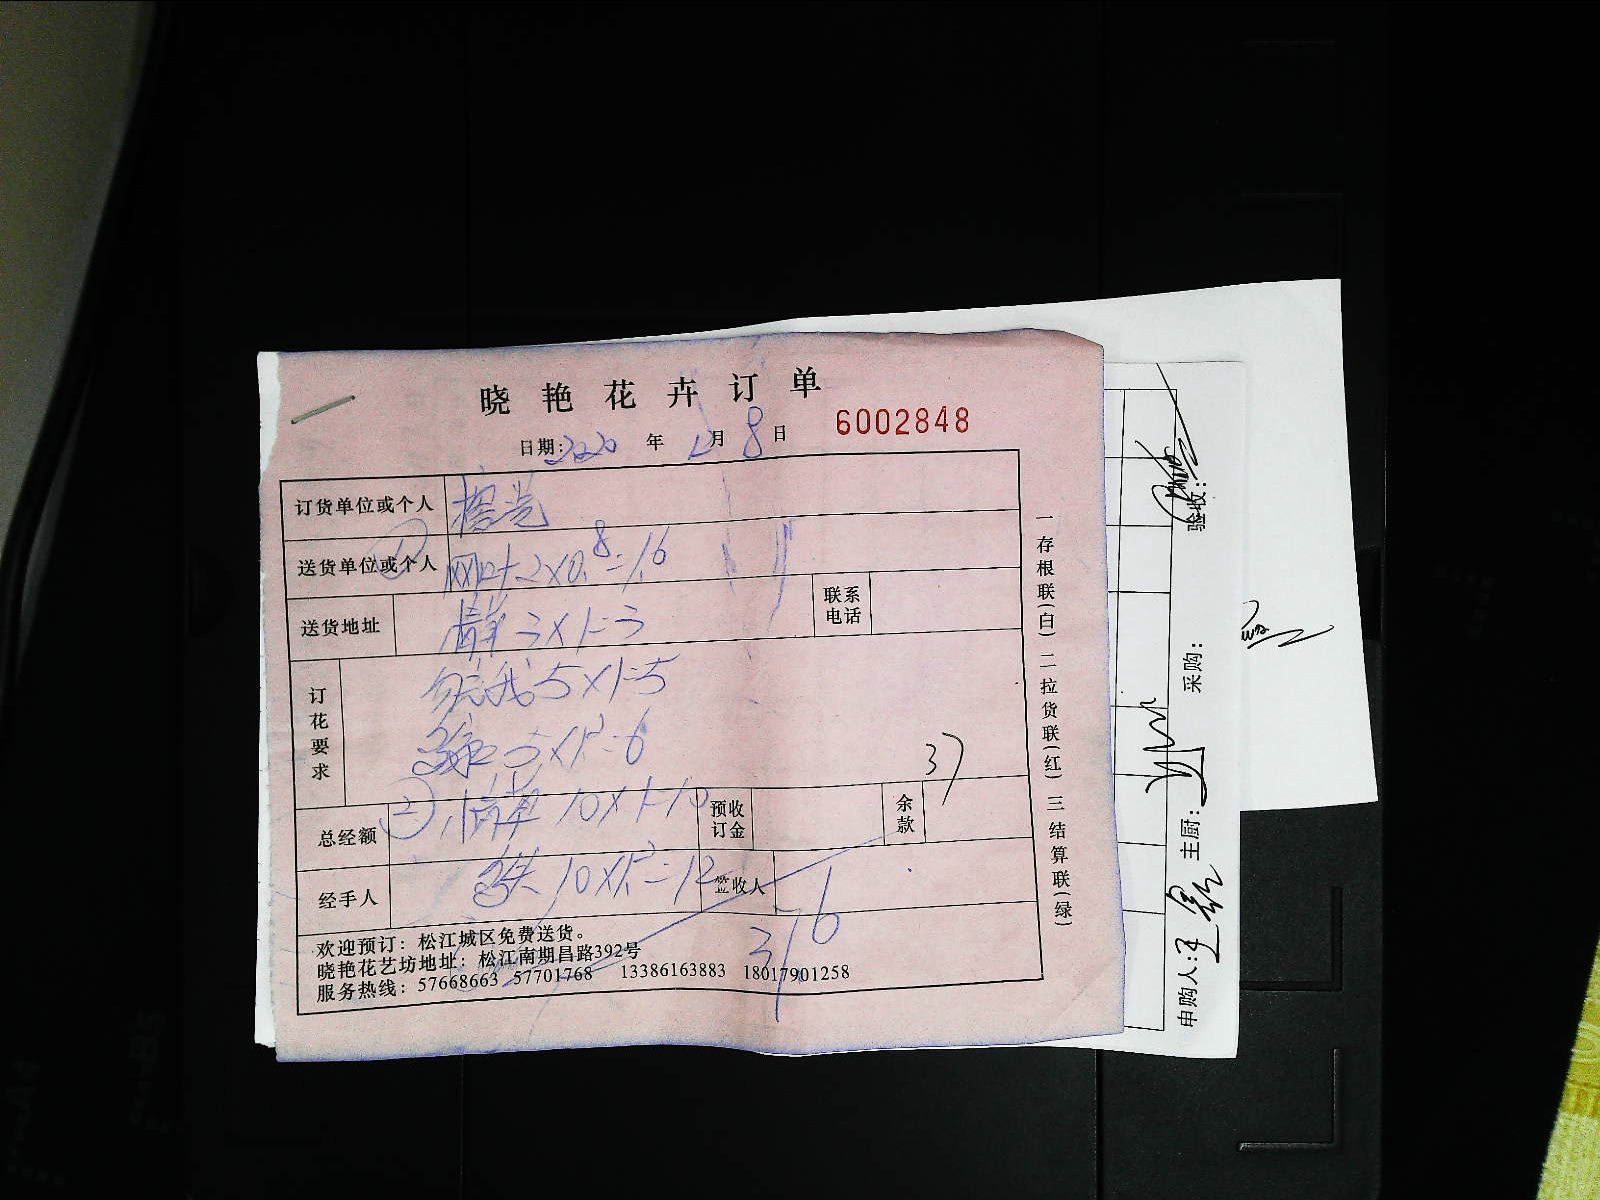 晓艳花卉订单
日期:2020年12月8日 6002848
订货单位或个人
送货单位或个人 ① 2×0.8=1.6
送货地址 3×1=3 联系电话
订花要求 勿忘我 5×1=5
5×1.2=6
37
总经额 ② 10×1=10 预收订金 余款
经手人 10×1.2=12 签收人
37.6
欢迎预订：松江城区免费送货。
晓艳花艺坊地址：松江南期昌路392号
服务热线：57668663 57701768 13386163883 18017901258
一存根联(白) 二拉货联(红) 三结算联(绿)
申购人: 主厨: 采购: 验收: